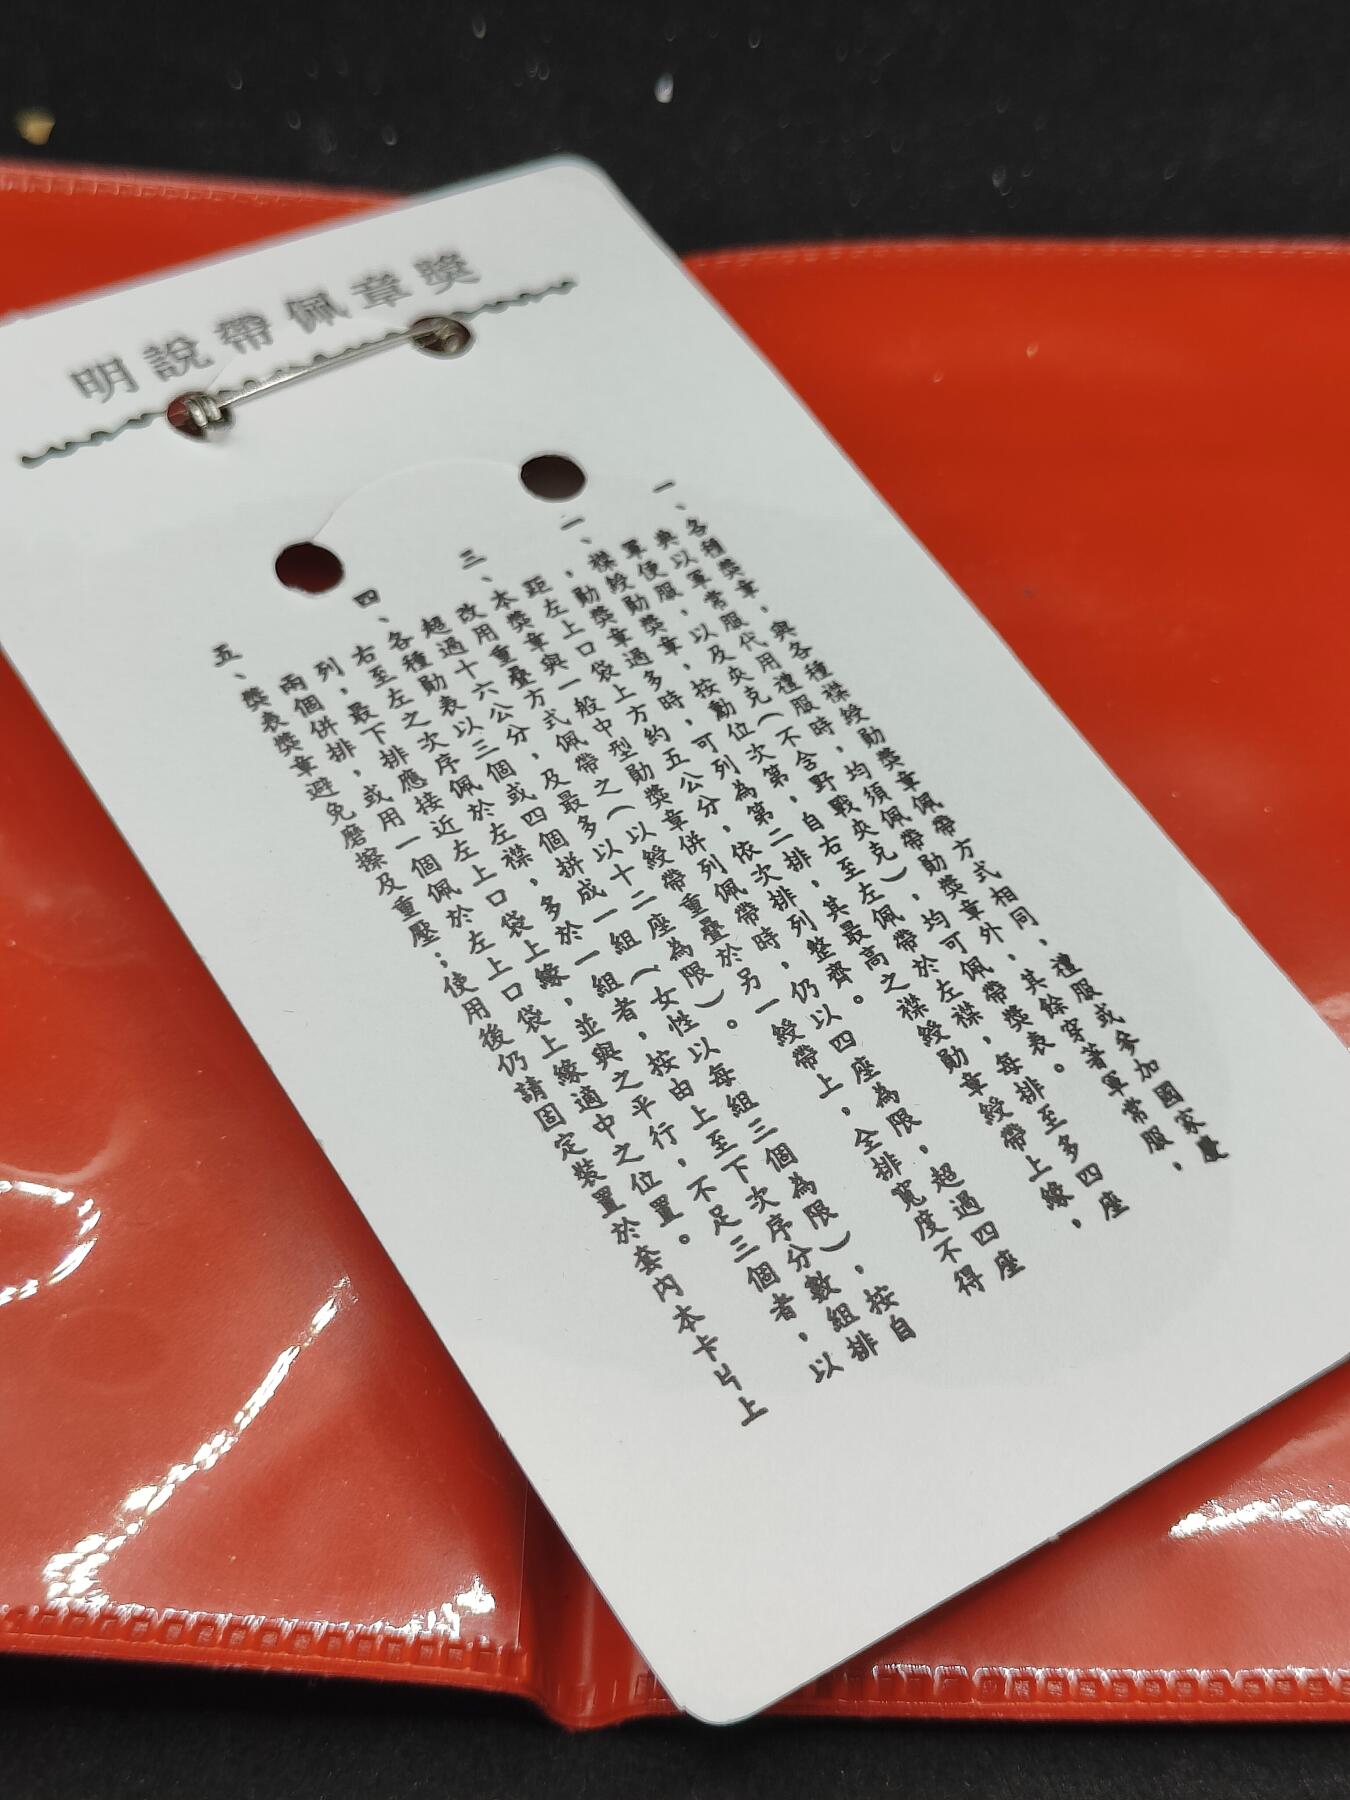 獎章佩帶說明
一、各種獎章，與各種襟綬勛獎章佩帶方式相同，禮服或參加國家慶
典以軍常服代用禮服時，均須佩帶勛獎章外，其餘穿著軍常服，
軍便服，以及夾克（不含野戰夾克），均可佩帶獎表。
二、襟綬勛獎章，按動位次第，自右至左佩帶於左襟，每排至多四座
，勛獎章過多時，可列為第二排，其最高之襟綬勛章綬帶上緣，
距左上口袋上方約五公分，依次排列整齊。
三、本獎章與一般中型勛獎章併列佩帶時，仍以四座為限，超過四座
改用重疊方式佩帶之（以綬帶重疊於另一綬帶上，全排寬度不得
超過十六公分，及最多以十二座為限）。
四、各種勛表以三個或四個拼成一組（女性以每組三個為限），按自
右至左之次序佩於左襟，多於一組者，按由上至下次序分數組排
列，最下排應接近左上口袋上緣，並與之平行，不足三個者，以
兩個併排，或用一個佩於左上口袋上緣適中之位置。
五、獎表獎章避免磨擦及重壓；使用後仍請固定裝置於套內本卡片上